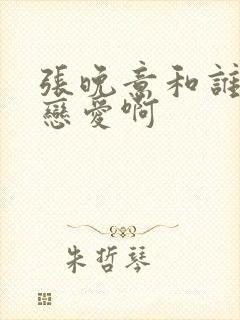 張晚意和誰
戀愛啊
朱哲琴